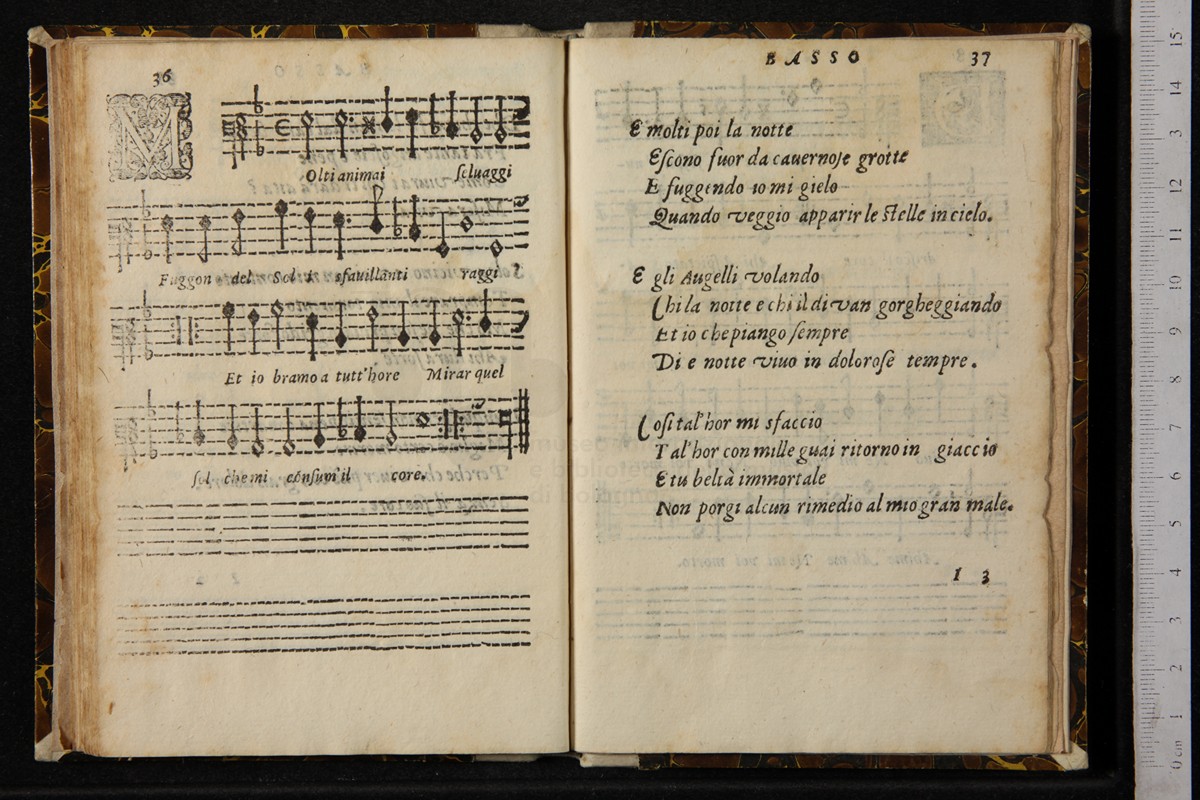 36
M Olti animai ſeluaggi
Fuggon del Sol i sfauillanti raggi
Et io bramo a tutt'hore Mirar quel
ſol che mi cōnſum'il core.
BASSO 37
E molti poi la notte
Eſcono fuor da cauernoſe grotte
E fuggendo io mi gielo
Quando veggio apparir le ſtelle in cielo.
E gli Augelli volando
Chi la notte e chi il dì van gorgheggiando
Et io che piango ſempre
Di e notte viuo in doloroſe tempre.
Coſi tal'hor mi sfaccio
Tal'hor con mille guai ritorno in giaccio
E tu beltà immortale
Non porgi alcun rimedio al mio gran male.
I 3
museo
e biblioteca
di bologna
15
14
13
12
11
10
9
8
7
6
5
4
3
2
1
0 cm